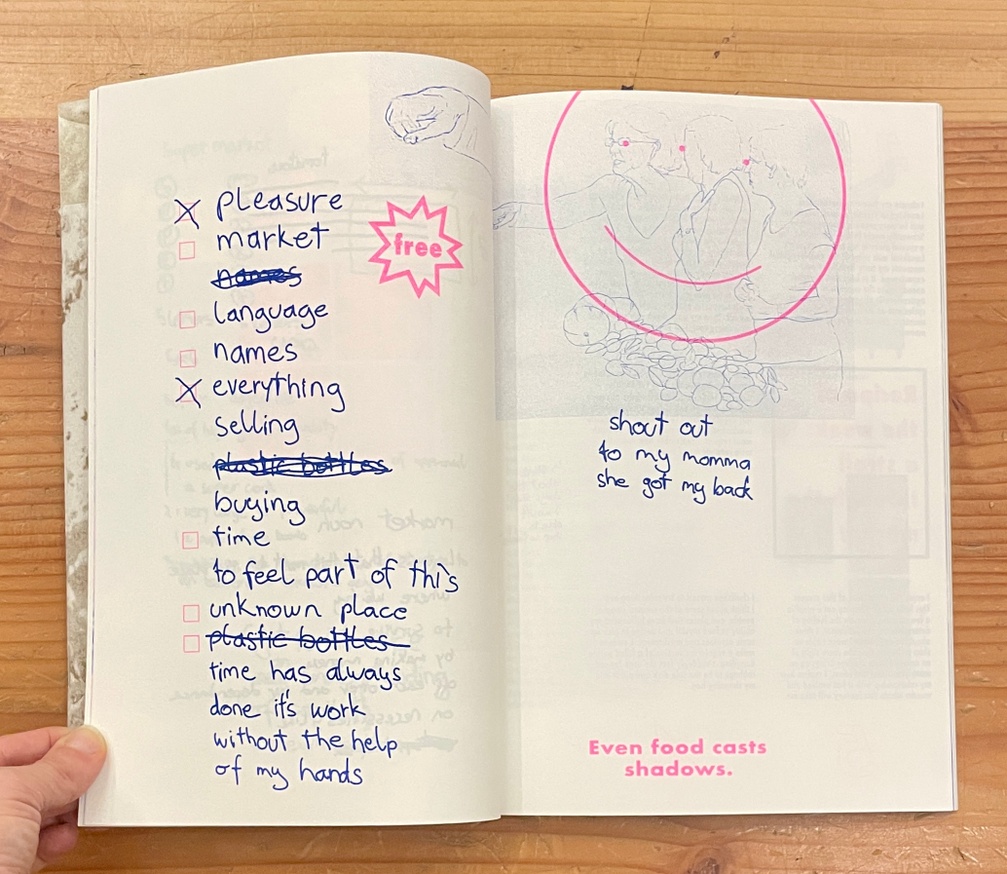 pleasure
market
free
names
language
names
everything
selling
plastic bottles
buying
time
to feel part of this
unknown place
plastic bottles
time has always
done it's work
without the help
of my hands
shout out
to my momma
she got my back
Even food casts
shadows.